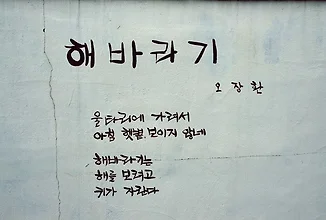 해바라기
오장환
울타리에 가려서
아침 햇볕 보이지 않네
해바라기는
해를 보려고
키가 자란다